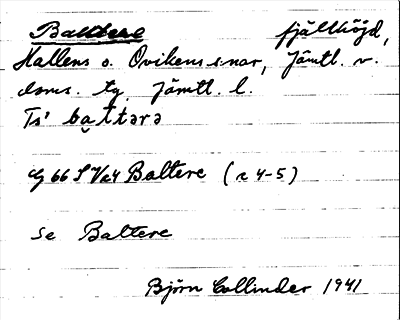 Baltere fjällhöjd,
Hallens o. Ovikens snar, Jämtl. v.
doms. tg. Jämtl. l.
Ts' battərə
G 66 S V a4 Baltere (c 4-5)
se Baltere
Björn Collinder 1941